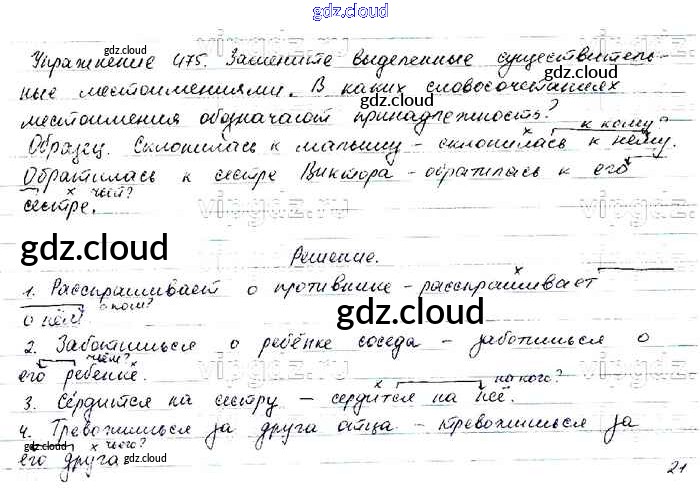 gdz.cloud
gdz.cloud
Упражнение 475. Замените выделенные существитель-
gdz.cloud
ные местоимениями. В каких словосочетаниях
gdz.cloud
местоимения обозначают принадлежность?
к кому?
Образец. Склонилась к малышу - склонилась к нему.
gdz.cloud
Обратилась к сестре Виктора - обратилась к его
х чьей?
сестре.
gdz.cloud
Решение.
1. Расспрашивает о противнике - расспрашивает
о ком?
о нём
gdz.cloud
2. Заботишься о ребёнке соседа - заботишься о
чьём?
его ребенке.
на кого?
3. Сердится на сестру - сердится на неё.
4. Тревожишься за друга отца - тревожишься за
gdz.cloud
х чьего?
его друга
gdz.cloud
gdz.cloud
21